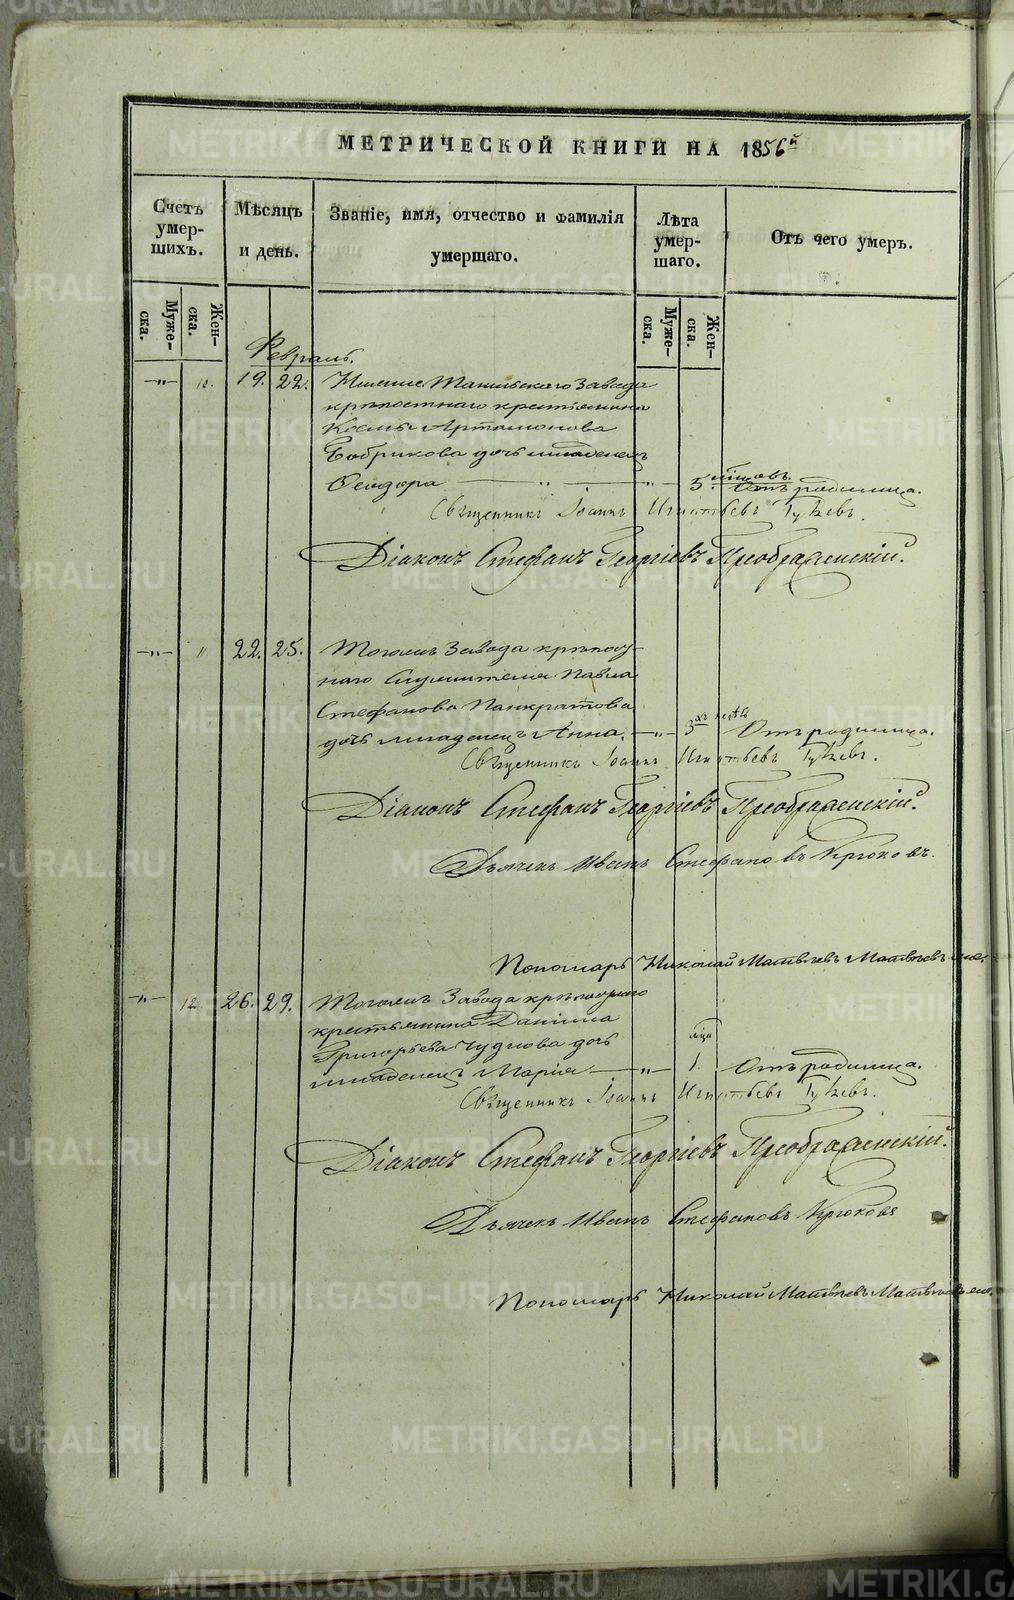 МЕТРИЧЕСКОЙ КНИГИ НА 1856й
Счетъ умер-шихъ.
Мѣсяцъ и день.
Званіе, имя, отчество и фамилія умершаго.
Лѣта умер-шаго.
Отъ чего умеръ.
Муже-ска.
Жен-ска.
Муже-ска.
Жен-ска.
Февраль.
—„— 10. 19. 22. Нижне Тагильскаго Завода
крѣпостнаго крестьянина
Космы Артамонова
Бобрикова дочь младенец
Ѳеодора — „ — —„— 5. мѣсцовъ. Отъ родимца.
Священникъ Іоаннъ Игнатьевъ
Діаконъ Стефанъ Георгіевъ Преображенскій.
—„— 11. 22. 25. Тогожъ Завода крѣпост-
наго Служителя Павла
Стефанова Панкратова
дочь младенецъ Анна. —„— 3хъ лѣтъ Отъ родимца.
Священникъ Іоаннъ Игнатьевъ
Діаконъ Стефанъ Георгіевъ Преображенскій.
Дьячекъ Иванъ Стефановъ Крюковъ.
Пономарь Николай Матвѣевъ
—„— 12. 26. 29. Тогожъ Завода крѣпостнаго
крестьянина Даніила
Григорьева Чуднова дочь
младенецъ Марія — —„— 1 мѣца Отъ родимца.
Священникъ Іоаннъ Игнатьевъ
Діаконъ Стефанъ Георгіевъ Преображенскій.
Дьячекъ Иванъ Стефановъ Крюковъ
Пономарь Николай Матвѣевъ
METRIKI.GASO-URAL.RU